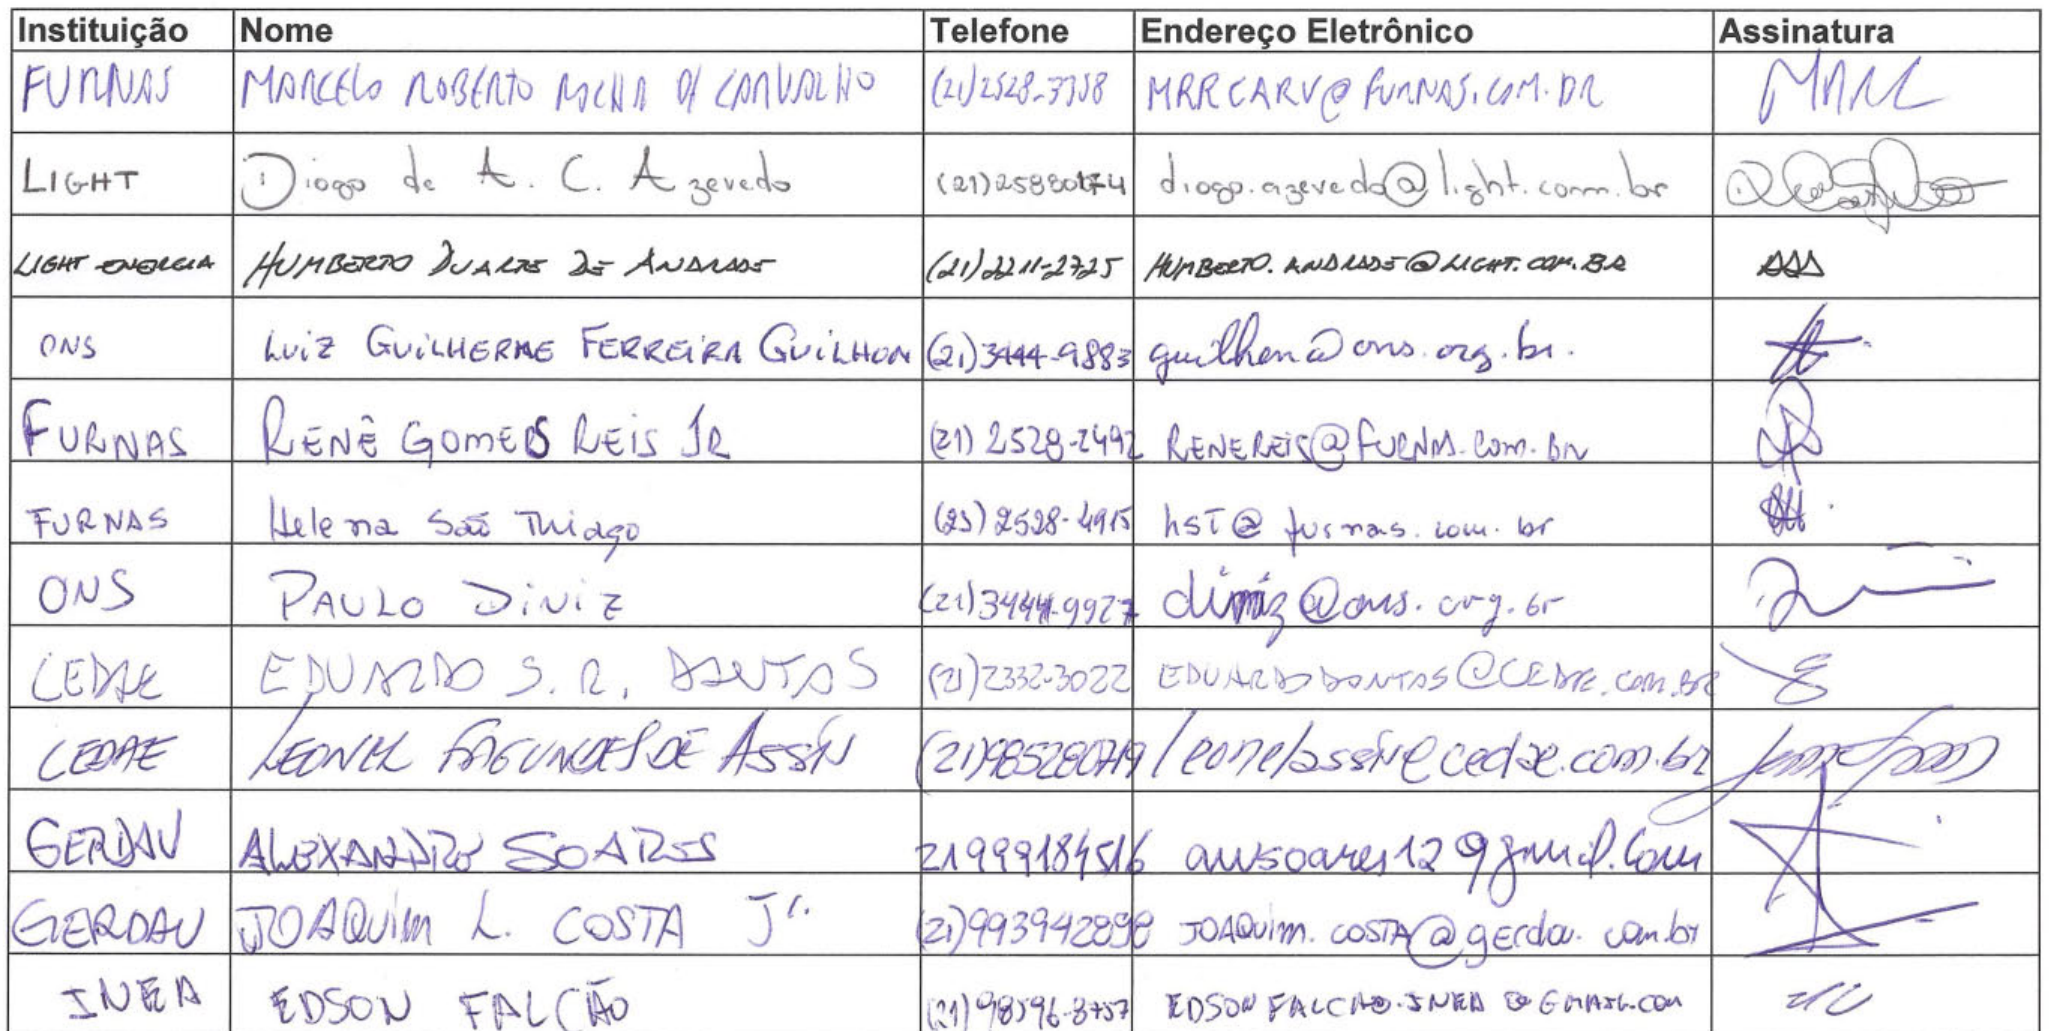 Instituição Nome Telefone Endereço Eletrônico Assinatura
FURNAS MARCELO ROBERTO ROCHA DE CARVALHO (21)2528-3358 MRRCARV@FURNAS.COM.BR
LIGHT Diogo de A. C. Azevedo (21)25880174 diogo.azevedo@light.com.br
LIGHT ENERGIA HUMBERTO DUARTE DE ANDRADE (21)2211-2725 HUMBERTO.ANDRADE@LIGHT.COM.BR
ONS LUIZ GUILHERME FERREIRA GUILHON (21)3444-9883 guilhon@ons.org.br.
FURNAS RENÊ GOMES REIS JR (21) 2528-2492 RENEREIS@FURNAS.COM.BR
FURNAS Helena São Thiago hST@furnas.com.br
ONS PAULO DINIZ (21)3444-9927 diniz@ons.org.br
CEDAE EDUARDO S. R. DANTAS (21)2332-3022 EDUARDODANTAS@CEDAE.COM.BR
CEDAE LEONEL FAGUNDES DE ASSIS (21)985280719 leonelassis@cedae.com.br
GERDAU ALEXANDRE SOARES 21999184516
GERDAU JOAQUIM L. COSTA Jr. (21)993942898 JOAQUIM.COSTA@gerdau.com.br
INEA EDSON FALCÃO (21)98596-8757 EDSONFALCAO.INEA@GMAIL.COM